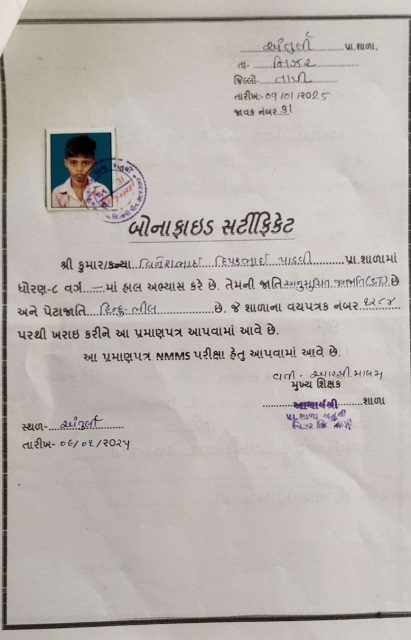 અંતુર્લી પ્રા.શાળા,
તા- નિઝર
જિલ્લો- તાપી
તારીખ:- 09/01/2025
જાવક નંબર 31
બોનાફાઇડ સર્ટીફિકેટ
શ્રી કુમાર/કન્યા દિપકભાઈ પાડવી પ્રા.શાળામાં
ધોરણ-૮ વર્ગ - માં હાલ અભ્યાસ કરે છે. તેમની જાતિ અનુસૂચિત જનજાતિ(ST) છે
અને પેટાજાતિ હિન્દુ-ભીલ છે. જે શાળાના વયપત્રક નંબર
પરથી ખરાઇ કરીને આ પ્રમાણપત્ર આપવામાં આવે છે.
આ પ્રમાણપત્ર NMMS પરીક્ષા હેતુ આપવામાં આવે છે.
મુખ્ય શિક્ષક
આચાર્યશ્રી શાળા
પ્રા.શાળા
સ્થળ- અંતુર્લી
તારીખ-